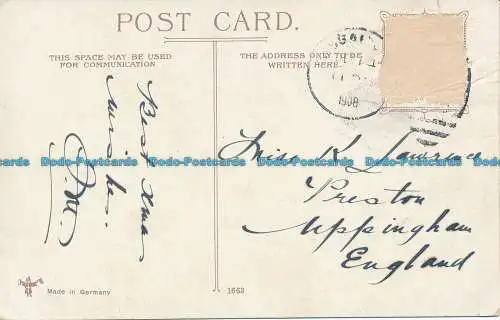 POST CARD.
THIS SPACE MAY BE USED
FOR COMMUNICATION
THE ADDRESS ONLY TO BE
WRITTEN HERE.
1908
Best Xmas
wishes.
Miss K Lawrence
Preston
Uppingham
England
Made in Germany
1663
Dodo-Postcards Dodo-Postcards Dodo-Postcards Dodo-Postcards Dodo-Postcards